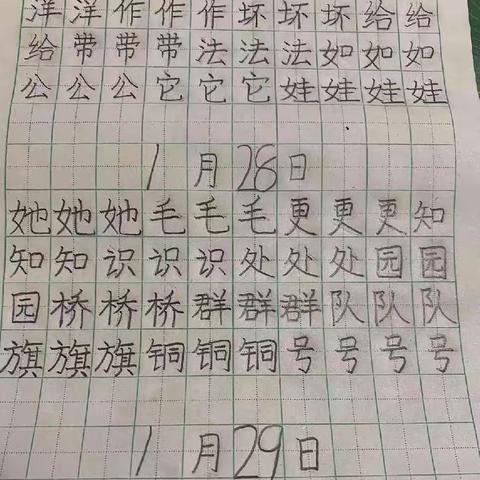 洋洋作作作坏坏坏给给
给带带带法法法如如如
公公公它它它娃娃娃娃
1月28日
她她她毛毛毛更更更知
知知识识识处处处园园
园桥桥桥群群群队队队
旗旗旗铜铜铜号号号号
1月29日